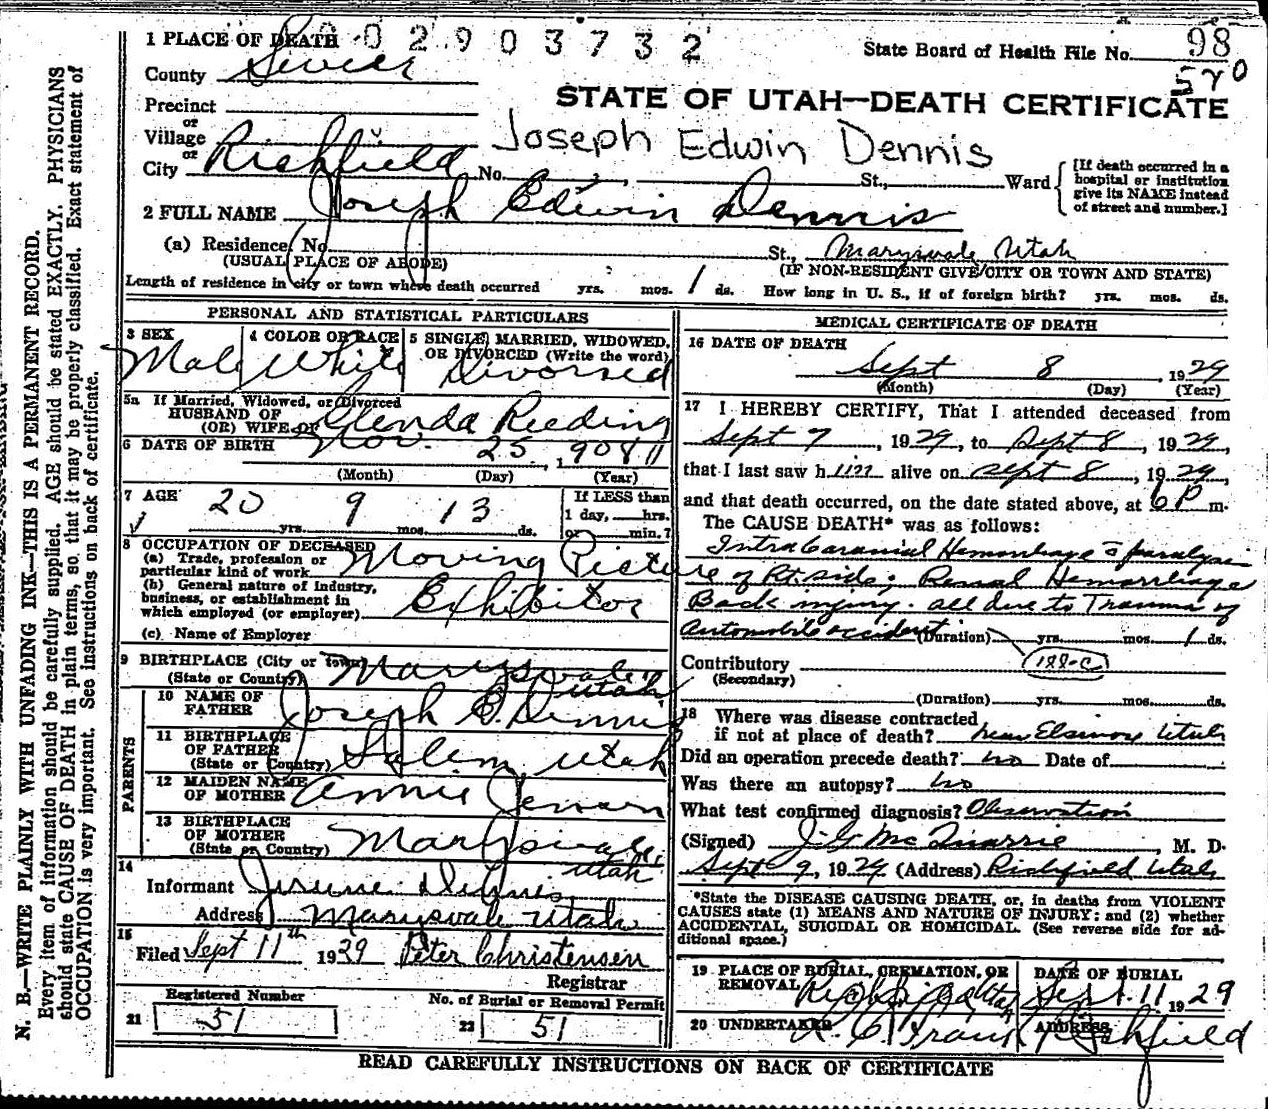 1 PLACE OF DEATH 002903732
State Board of Health File No. 98
570
County Sevier
STATE OF UTAH—DEATH CERTIFICATE
Precinct
or
Village
or
City Richfield No. St., Ward
Joseph Edwin Dennis
[If death occurred in a hospital or institution give its NAME instead of street and number.]
2 FULL NAME Joseph Edwin Dennis
(a) Residence, No. St., Marysvale Utah
(USUAL PLACE OF ABODE) (IF NON-RESIDENT GIVE CITY OR TOWN AND STATE)
Length of residence in city or town where death occurred yrs. mos. 1 ds. How long in U. S., if of foreign birth? yrs. mos. ds.
PERSONAL AND STATISTICAL PARTICULARS
3 SEX 4 COLOR OR RACE 5 SINGLE, MARRIED, WIDOWED, OR DIVORCED (Write the word)
Male White Divorsed
5a If Married, Widowed, or Divorced
HUSBAND OF
(OR) WIFE OF Glenda Reeding
6 DATE OF BIRTH Nov. 25, 1908
(Month) (Day) (Year)
7 AGE 20 yrs. 9 mos. 13 ds.
If LESS than 1 day, hrs. or min.?
8 OCCUPATION OF DECEASED
(a) Trade, profession or particular kind of work Moving Picture
(b) General nature of industry, business, or establishment in which employed (or employer) Exhibitor
(c) Name of Employer
9 BIRTHPLACE (City or town) (State or County) Marysvale Utah
PARENTS
10 NAME OF FATHER Joseph E. Dennis
11 BIRTHPLACE OF FATHER (State or Country) Salem Utah
12 MAIDEN NAME OF MOTHER Annie Jensen
13 BIRTHPLACE OF MOTHER (State or Country) Marysvale, Utah
14
Informant Dennis
Address Marysvale Utah
15
Filed Sept 11th 1929 Peter Christensen
Registrar
Registered Number No. of Burial or Removal Permit
21 51 22 51
MEDICAL CERTIFICATE OF DEATH
16 DATE OF DEATH
Sept 8, 1929
(Month) (Day) (Year)
17 I HEREBY CERTIFY, That I attended deceased from
Sept 7, 1929, to Sept 8, 1929,
that I last saw him alive on Sept 8, 1929,
and that death occurred, on the date stated above, at 6 P m.
The CAUSE DEATH* was as follows:
Intra Caranial Hemorrhage c̄ paralysis
of Rt. side; Renal Hemorrhage
Back injury. all due to Trauma of
Automobile accident (Duration) yrs. mos. 1 ds.
Contributory 188-C
(Secondary)
(Duration) yrs. mos. ds.
18 Where was disease contracted
if not at place of death? near Elsinore Utah
Did an operation precede death? no Date of
Was there an autopsy? no
What test confirmed diagnosis? Observation
(Signed) J. G. McQuarrie, M. D.
Sept 9, 1929 (Address) Richfield Utah
*State the DISEASE CAUSING DEATH, or, in deaths from VIOLENT
CAUSES state (1) MEANS AND NATURE OF INJURY: and (2) whether
ACCIDENTAL, SUICIDAL OR HOMICIDAL. (See reverse side for ad-
ditional space.)
19 PLACE OF BURIAL, CREMATION, OR REMOVAL Richfield Utah
DATE OF BURIAL Sept. 11 1929
20 UNDERTAKER ADDRESS Richfield
READ CAREFULLY INSTRUCTIONS ON BACK OF CERTIFICATE
N. B.—WRITE PLAINLY WITH UNFADING INK—THIS IS A PERMANENT RECORD.
Every item of information should be carefully supplied. AGE should be stated EXACTLY. PHYSICIANS
should state CAUSE OF DEATH in plain terms, so that it may be properly classified. Exact statement of
OCCUPATION is very important. See instructions on back of certificate.